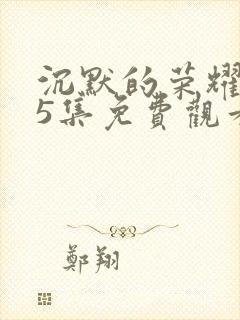 沉默的荣耀
5集免費觀看
鄭翔